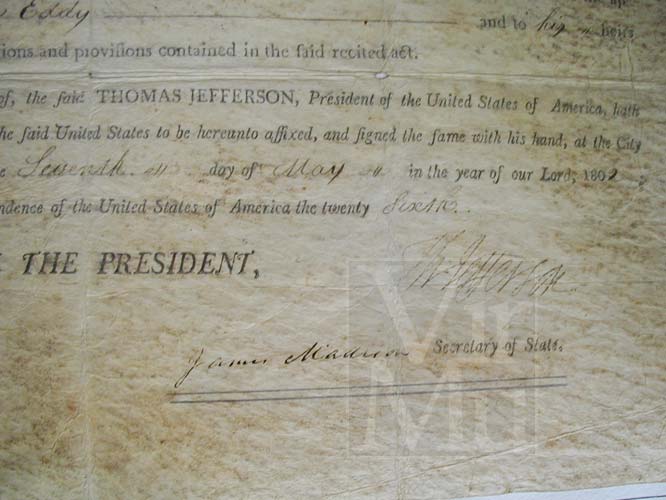 Eddy and to his heirs
ions and proviſions contained in the ſaid recited act.
of, the ſaid THOMAS JEFFERSON, Preſident of the United States of America, hath
he ſaid United States to be hereunto affixed, and ſigned the ſame with his hand, at the City
e Seventh day of May in the year of our Lord, 1802
ndence of the United States of America the twenty Sixth.
THE PRESIDENT,
Th: Jefferson
James Madison Secretary of State.